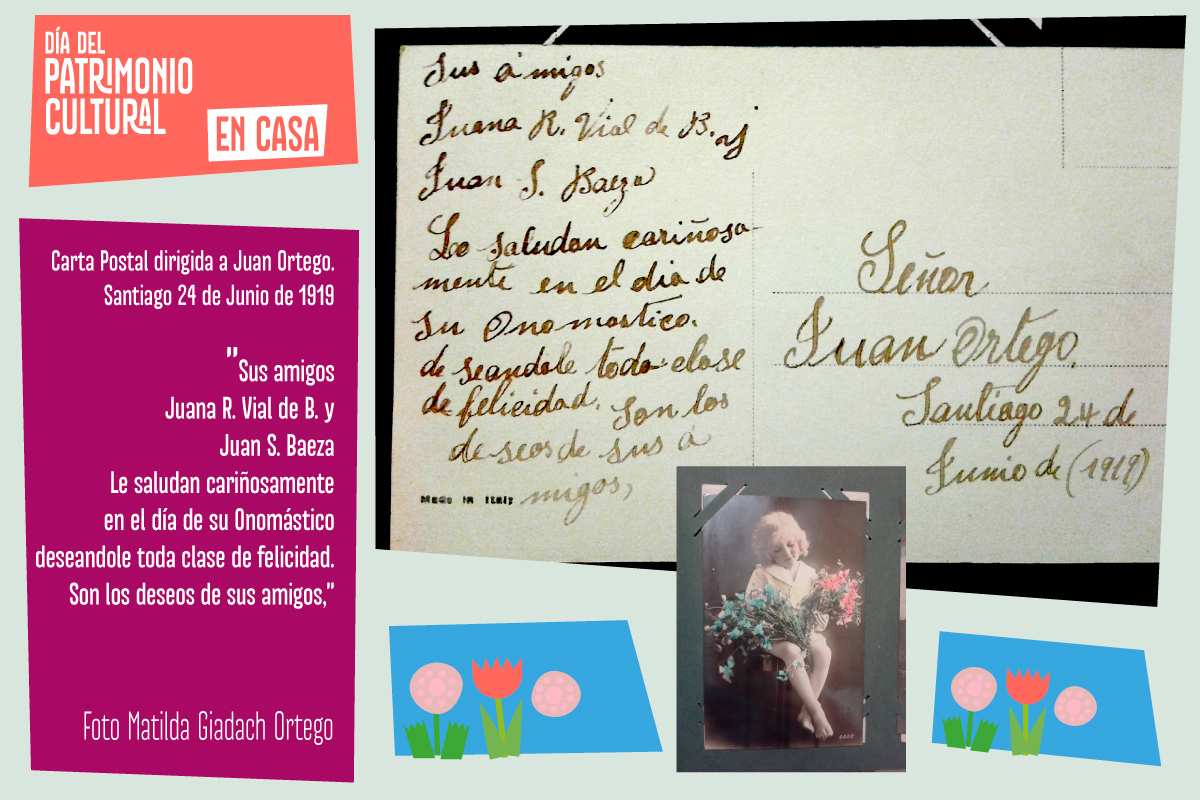 DÍA DEL
PATRIMONIO
CULTURAL
EN CASA
Carta Postal dirigida a Juan Ortego.
Santiago 24 de Junio de 1919
"Sus amigos
Juana R. Vial de B. y
Juan S. Baeza
Le saludan cariñosamente
en el día de su Onomástico
deseandole toda clase de felicidad.
Son los deseos de sus amigos,"
Foto Matilda Giadach Ortego
Sus a migos
Juana R. Vial de B. y
Juan S. Baeza
Le saludan cariñosa-
mente en el dia de
su Onomastico.
de seandole toda clase
de felicidad. Son los
de seos de sus a
migos,
MADE IN ITALY
Señor
Juan Ortego
Santiago 24 de
Junio de (1919)